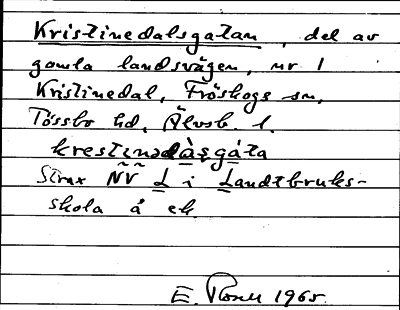 Kristinedalsgatan, del av
gamla landsvägen, nr 1
Kristinedal, Fröskogs sn,
Tössbo hd, Älvsb. l.
krestinədàs̡gáta
Strax ÑṼ L i Landtbruks-
skola å ek.
E. 1965.